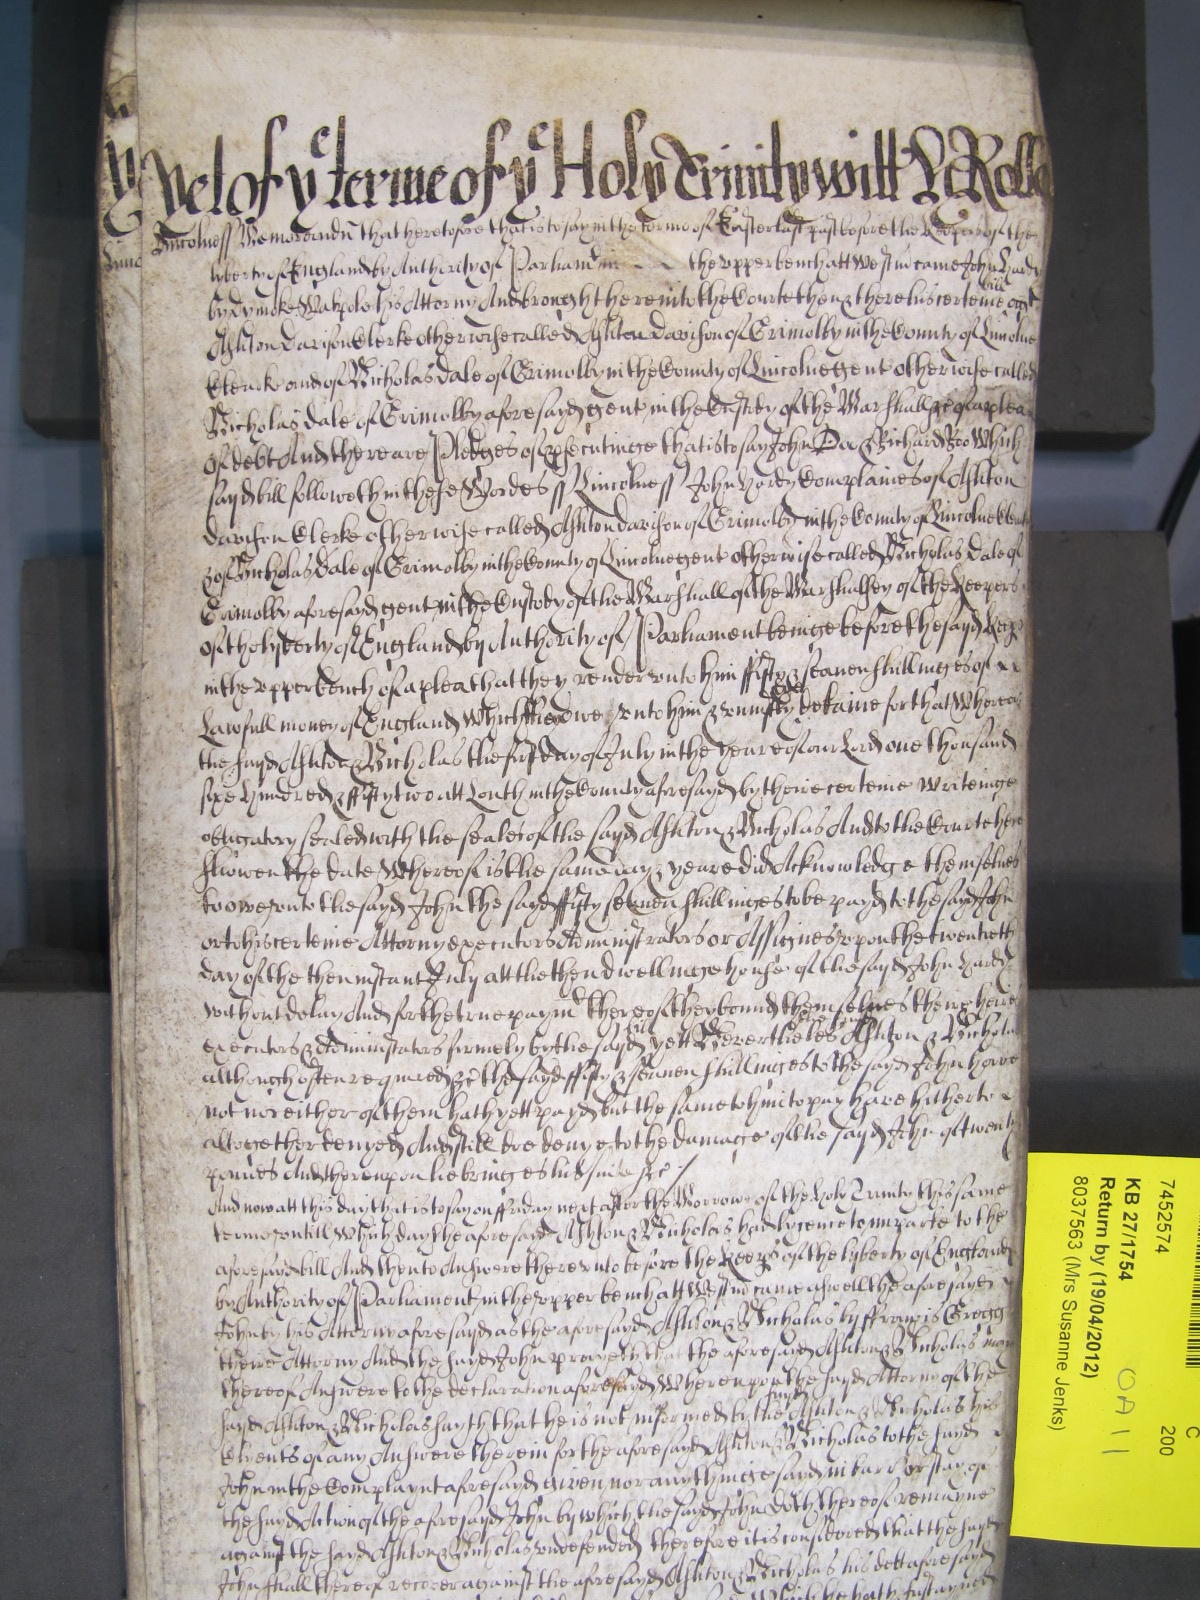 Yet of ye terme of ye Holy Trinity witt Le Rolle
Lincolness Memorandu that heretofore that is to say in the terme of Easter last past before the Keepers of the
lyberty of England by Authority of Parliam the upper bench att Westm came John Hardy
by Dymoke Walpole his Attorny And brought here into the Courte then & there his certeine bill agt
Ashton Davison Clerke otherwise called Ashton Davison of Grimolby in the County of Lincolne
Clerke and of Nicholas Dale of Grimolby in the County of Lincolne gent otherwise called
Nicholas Dale of Grimolby aforesayd gent in the Custody of the Marshall &c of a plea
of debt And there are Pledges of psecutinge that is to say John Doe & Richard Roe Which
sayd bill followeth in these Wordes ss Lincolness John Hardy Complaines of Ashton
Davison Clerke otherwise called Ashton Davison of Grimolby in the County of Lincolne Clerke
& of Nicholas Dale of Grimolby in the County of Lincolne gent otherwise called Nicholas Dale of
Grimolby aforesayd gent in the Custody of the Marshall of the Marshalsey of the Keepers
of the lyberty of England by Authority of Parliament beinge before the sayd Keeps
in the upper bench of a plea that they render unto him fifty & seaven shillinges of
Lawfull money of England Which they owe unto him & uniustly detaine for that Whereas
the sayd Ashton & Nicholas the first day of July in the yeare of our Lord one thousand
sixe hundred & fifty two att Louth in the County aforesayd by theire certeine writeinge
obligatory sealed with the seales of the sayd Ashton & Nicholas And to the Courte here
showen the date Whereof is the same day & yeare did Acknowledge themselves
to owe unto the sayd John the sayd fifty seaven shillinges to be payd to the sayd John
or to his certeine Attorny executors Administrators or Assignes upon the twentieth
day of the then instant July att the then dwellinge house of the sayd John Hardy
without delay And for the true paymt thereof they bound themselves theire heires
executors & Administrators firmely by the sayd bill yett Neverthelesse the sayd Ashton & Nicholas
although often required &c the sayd fifty & seaven shillinges to the sayd John have
not nor either of them hath yett payd but the same to him to pay have hitherto
altogether denyed And still doe deny to the damage of the sayd John of twenty
pounes And thereupon he bringes his suite &c
And now att this day that is to say on ffriday next after the Morrowe of the Holy Trinity this same
terme untill Which day the aforesayd Ashton & Nicholas had lycence to imparle to the
aforesayd bill And then to Answere thereunto before the Keeps of the lyberty of England
by Authority of Parliament in the upper bench att Westm came aswell the aforesayd
John by his Attorny aforesayd as the aforesayd Ashton & Nicholas by ffrancis Gregg
theire Attorny And the sayd John prayeth that the aforesayd Ashton & Nicholas may
thereof Answere to the declaration aforesayd Whereupon the sayd Attorny of the
sayd Ashton & Nicholas sayth that he is not informed by the sayd Ashton & Nicholas his
Clients of any Answere therein for the aforesayd Ashton & Nicholas to the sayd
John in the Complaynt aforesayd given nor any thinge sayd in barr or stay of
the sayd Action of the aforesayd John by which the sayd John doth thereof remayne
against the sayd Ashton & Nicholas undefended therefore it is considered that the sayd
John shall thereof recover against the aforesayd Ashton & Nicholas his debt aforesayd
Which he hath sustayned
C
7452574 200
KB 27/1754
Return by (19/04/2012)
8037563 (Mrs Susanne Jenks)
OA 11